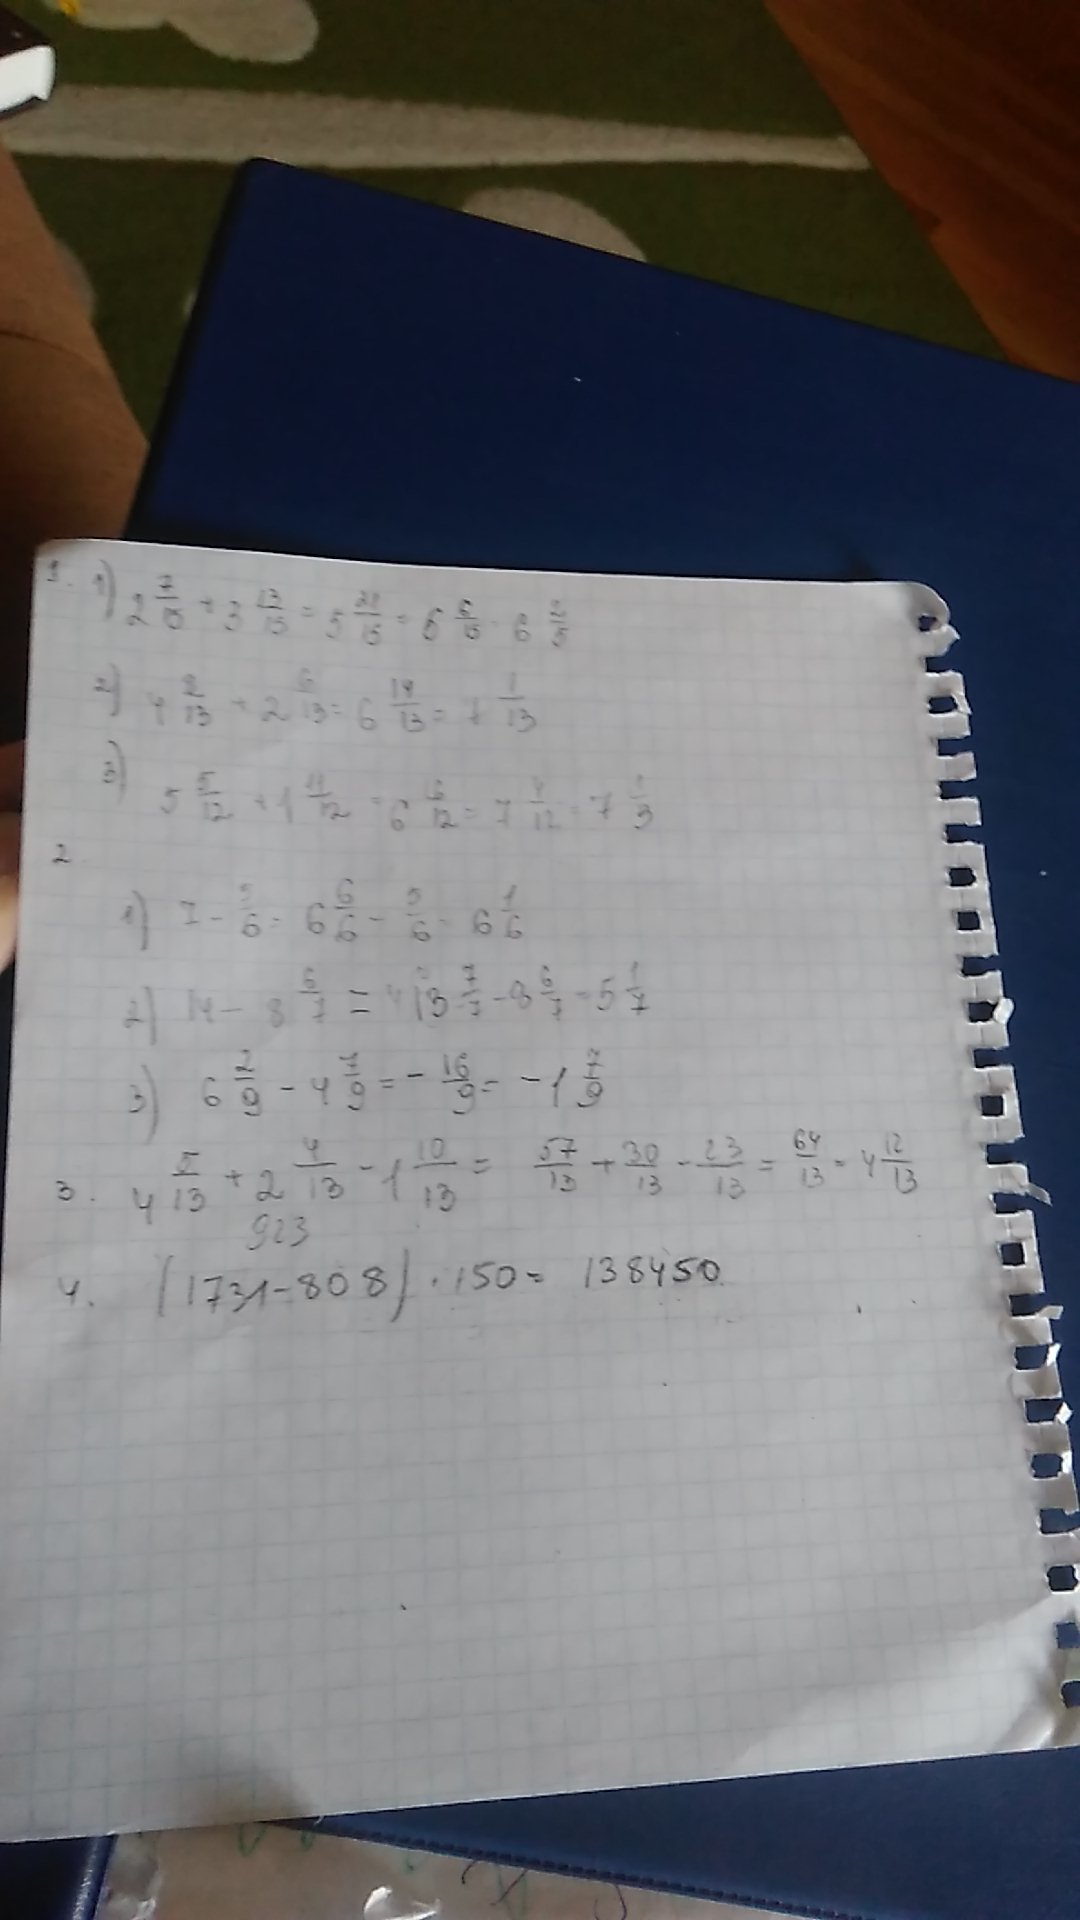 1. 1) 2 7/15 + 3 13/15 = 5 21/15 = 6 6/15 = 6 2/5
2) 4 8/13 + 2 6/13 = 6 14/13 = 7 1/13
3) 5 5/12 + 1 11/12 = 6 16/12 = 7 4/12 = 7 1/3
2.
1) 7 - 5/6 = 6 6/6 - 5/6 = 6 1/6
2) 14 - 8 6/7 = 13 7/7 - 8 6/7 = 5 1/7
3) 6 2/9 - 4 7/9 = - 16/9 = -1 7/9
3. 4 5/13 + 2 4/13 - 1 10/13 = 57/13 + 30/13 - 23/13 = 64/13 = 4 12/13
923
4. (1731-808) · 150 = 138450